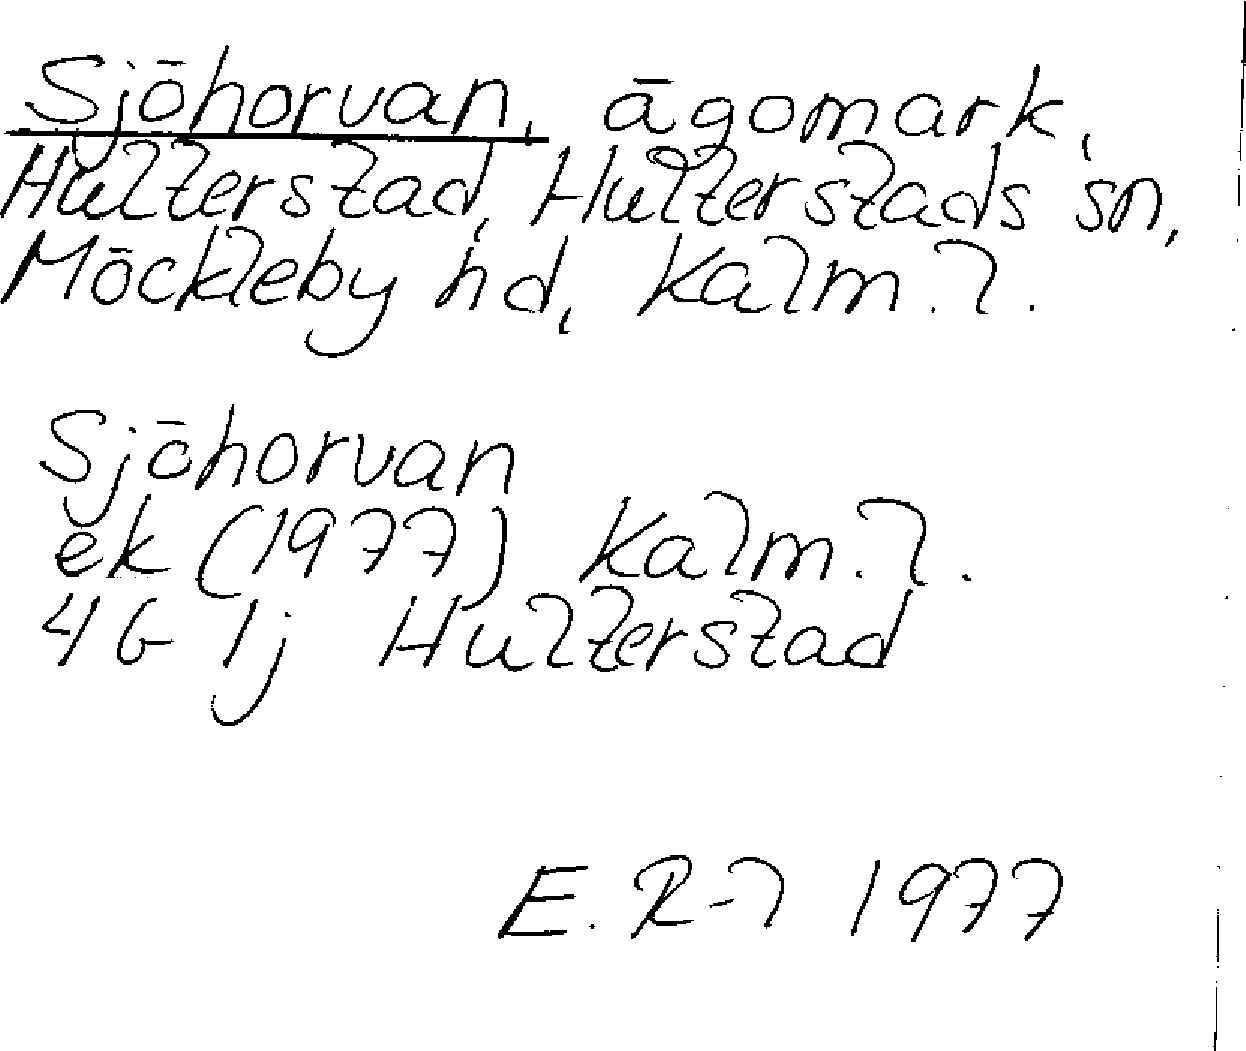 Sjöhorvan, ägomark,
Hulterstad, Hulterstads sn,
Möckleby hd, Kalm. l.
Sjöhorvan
ek (1977) Kalm. l.
4G 1j Hulterstad
E. R-l 1977